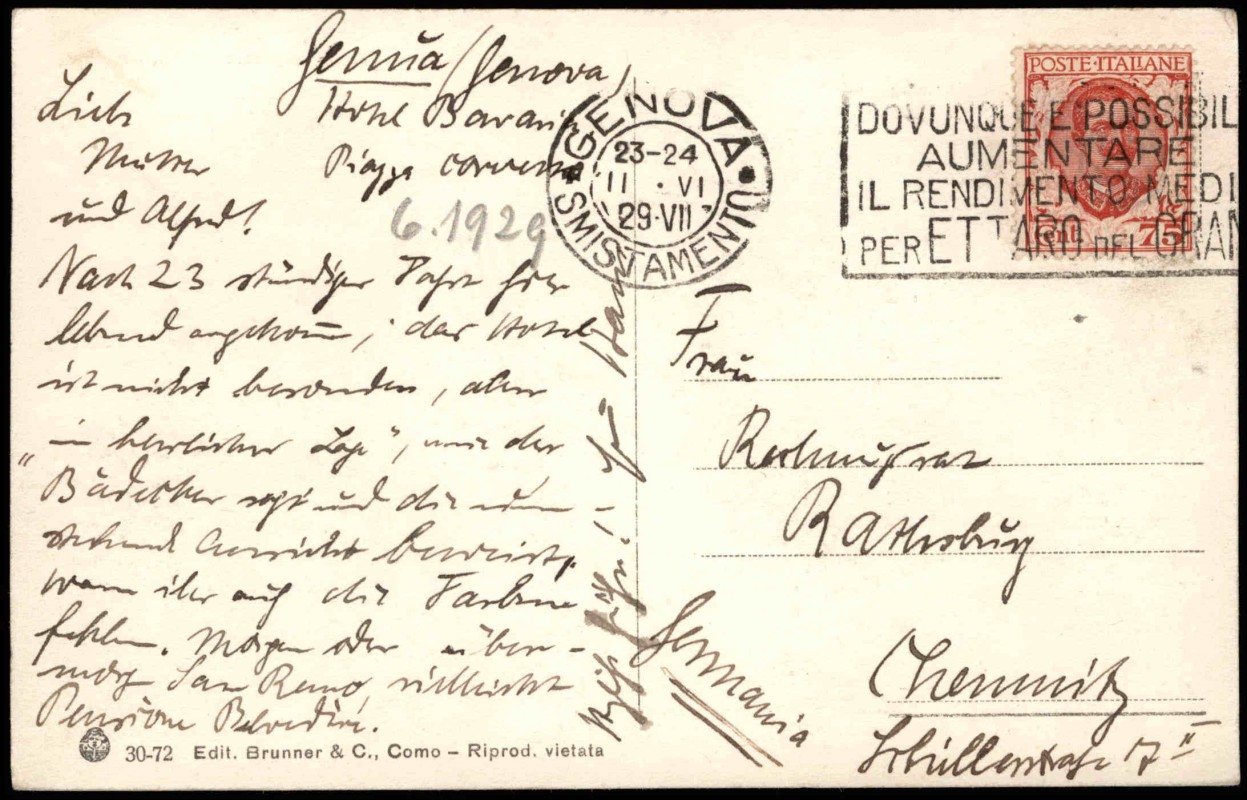 Genua (Genova)
Hotel Bavaria
Piazza Corvetto
Liebe
Mutter
und Alfred!
6.1929
Nach 23 stündiger Fahrt hier
lebend angekomm; das Hotel
ist nicht besonders, aber
"in herrlicher Lage", wie der
Bädecker sagt und die um-
stehende Ansicht beweist,
wenn ihr auch die Farben
fehlen. Morgen oder über-
morg San Remo, vielleicht
Pensione Belvedere.
GENOVA
23-24
11 · VI
29·VII
SMISTAMENTO
POSTE·ITALIANE
Cent. 75
DOVUNQUE È POSSIBIL
AUMENTARE
IL RENDIMENTO MEDI
PER ETTARO DEL GRAN
Frau
Rechnungsrat
Rathsburg
Chemnitz
Schüllerstraße 17 II
Germania
30-72 Edit. Brunner & C., Como – Riprod. vietata